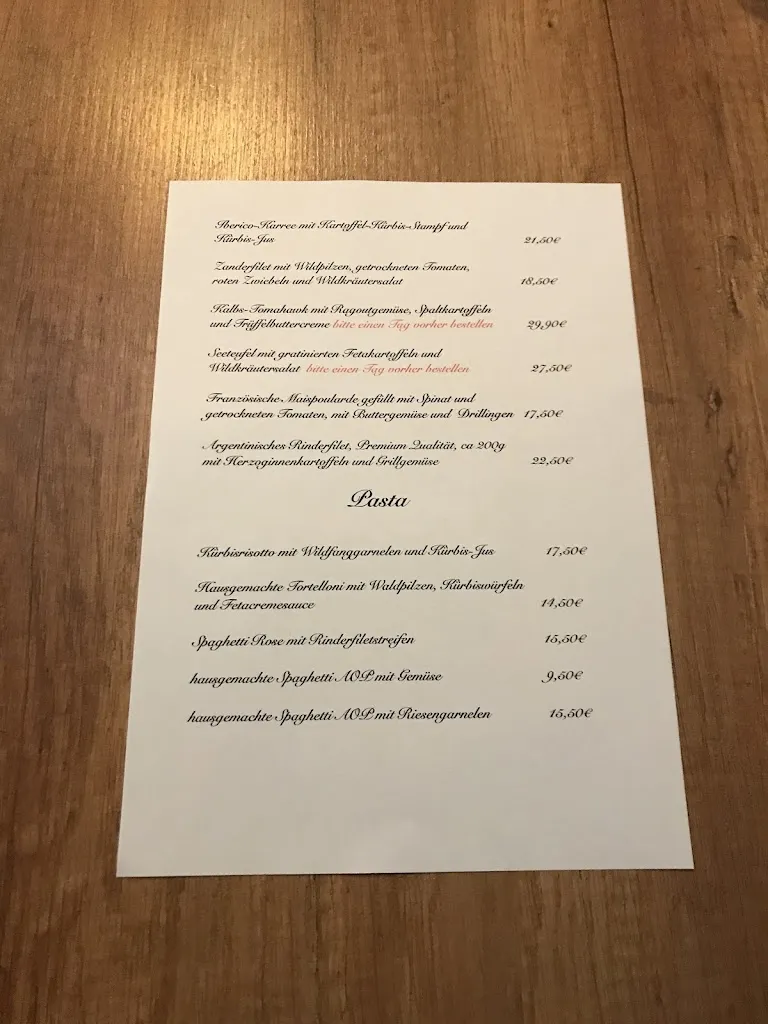 Iberico-Karree mit Kartoffel-Kürbis-Stampf und
Kürbis-Jus 21,50€
Zanderfilet mit Wildpilzen, getrockneten Tomaten,
roten Zwiebeln und Wildkräutersalat 18,50€
Kalbs-Tomahawk mit Ragoutgemüse, Spaltkartoffeln
und Trüffelbuttercreme bitte einen Tag vorher bestellen 29,90€
Seeteufel mit gratinierten Fetakartoffeln und
Wildkräutersalat bitte einen Tag vorher bestellen 27,50€
Französische Maispoularde gefüllt mit Spinat und
getrockneten Tomaten, mit Buttergemüse und Drillingen 17,50€
Argentinisches Rinderfilet, Premium Qualität, ca 200g
mit Herzoginnenkartoffeln und Grillgemüse 22,50€
Pasta
Kürbisrisotto mit Wildfanggarnelen und Kürbis-Jus 17,50€
Hausgemachte Tortelloni mit Waldpilzen, Kürbiswürfeln
und Fetacremesauce 14,50€
Spaghetti Rose mit Rinderfiletstreifen 15,50€
hausgemachte Spaghetti AOP mit Gemüse 9,50€
hausgemachte Spaghetti AOP mit Riesengarnelen 15,50€